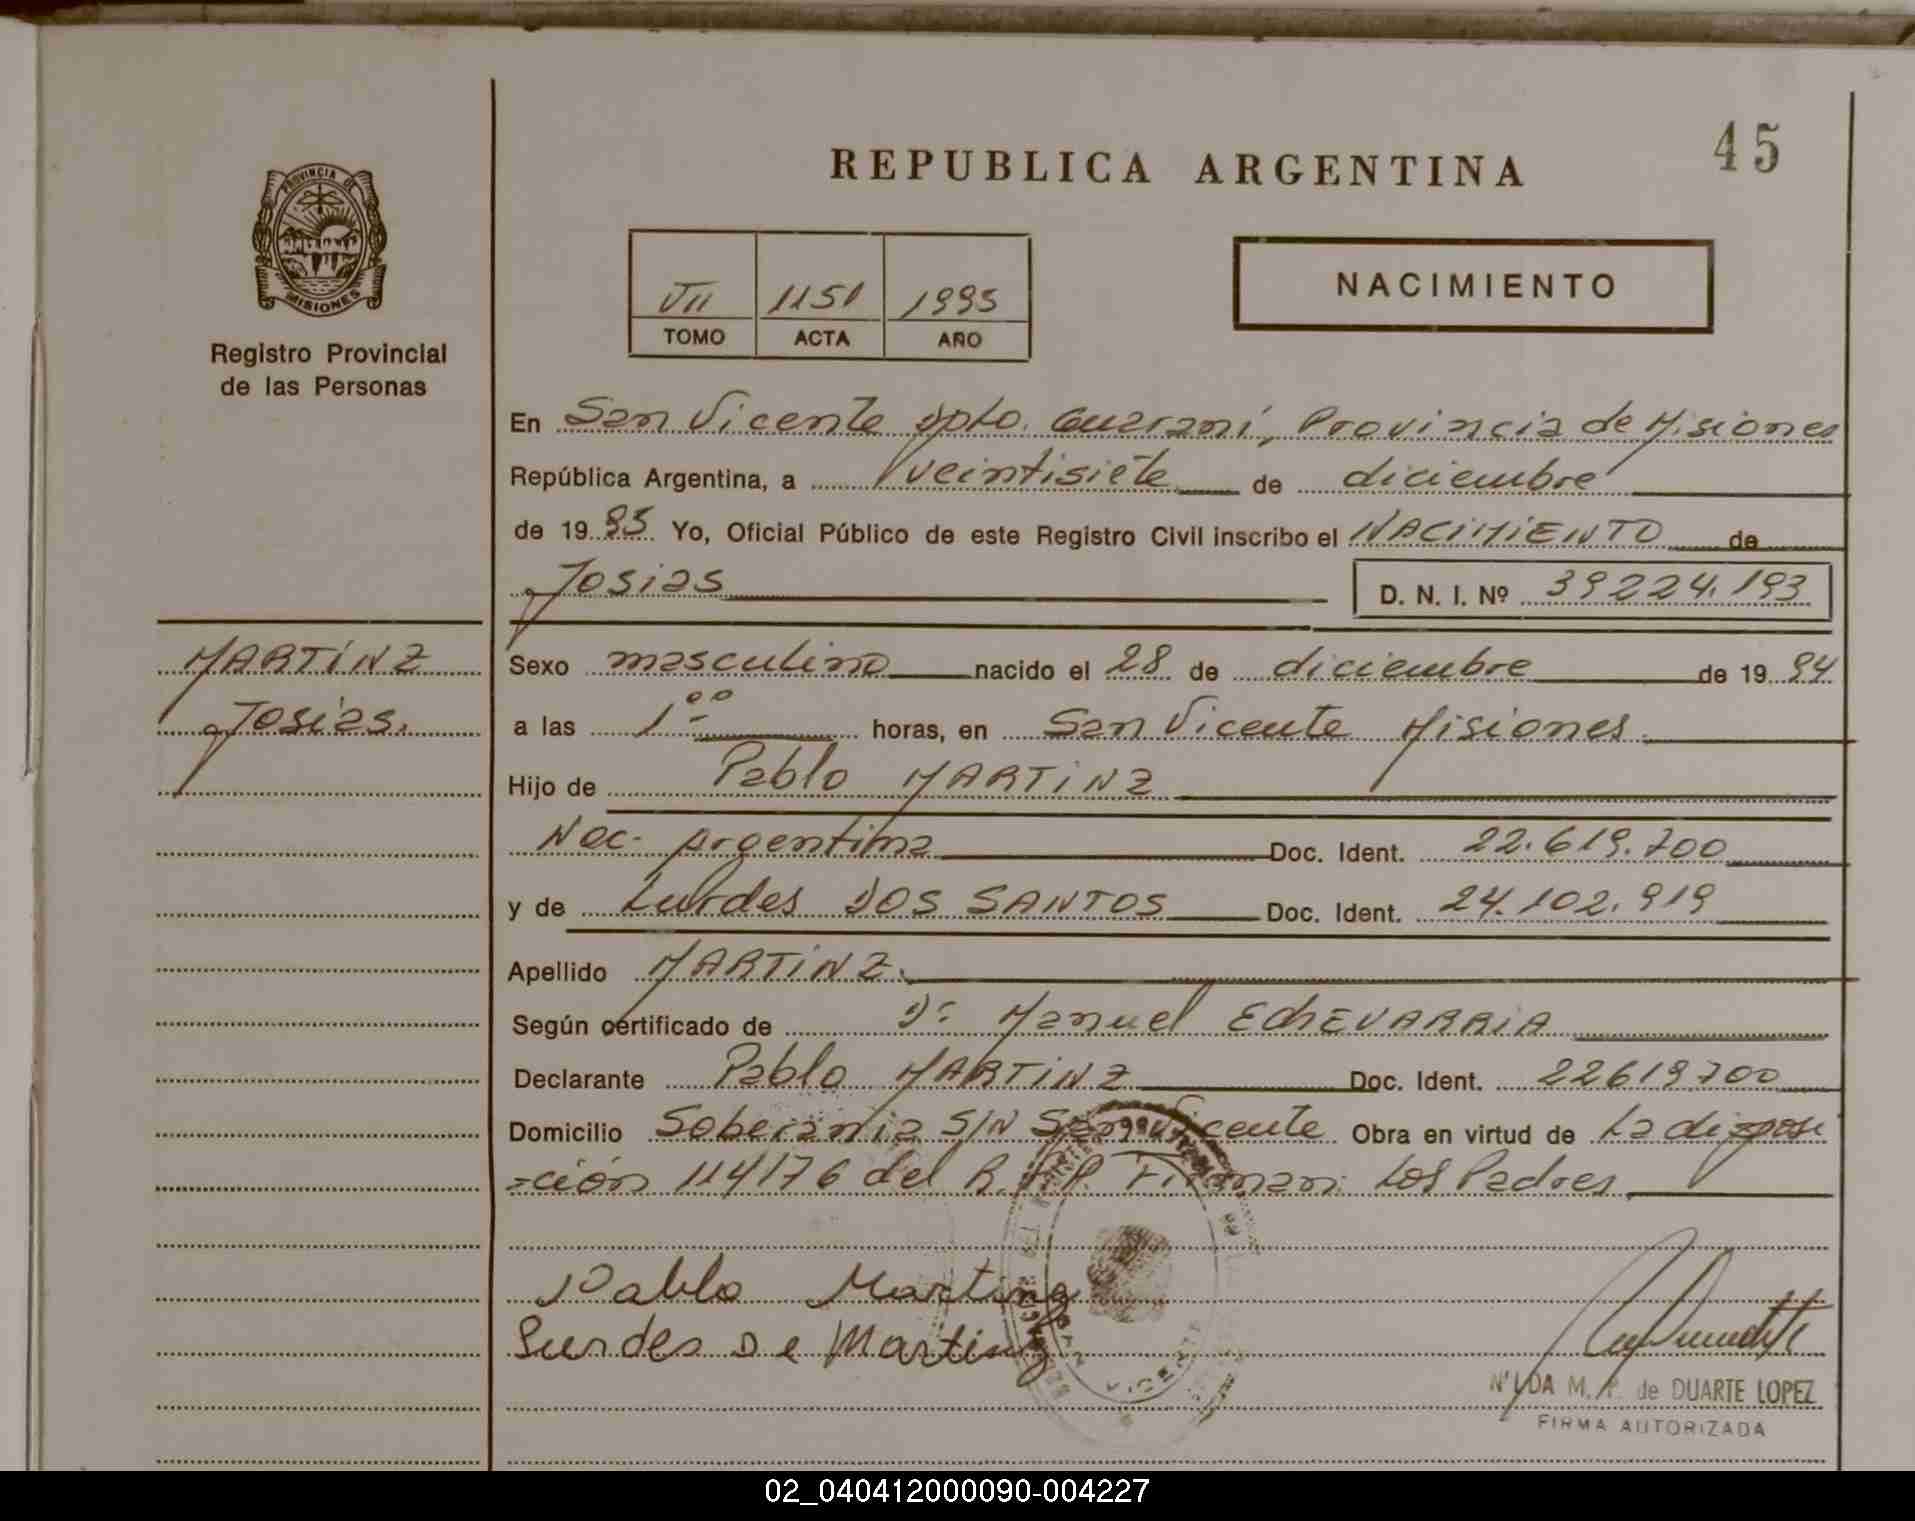 45
REPUBLICA ARGENTINA
PROVINCIA DE
MISIONES
Registro Provincial
de las Personas
VII 1151 1995
TOMO ACTA AÑO
NACIMIENTO
En San Vicente Dpto. Guaraní, Provincia de Misiones
República Argentina, a veintisiete de diciembre
de 1995 Yo, Oficial Público de este Registro Civil inscribo el NACIMIENTO de
Josias D. N. I. Nº 39224.193
MARTINZ
Josias.
Sexo masculino nacido el 28 de diciembre de 1994
a las 1⁰⁰ horas, en San Vicente Misiones.
Hijo de Pablo MARTINZ
Nac. Argentina Doc. Ident. 22.619.700
y de Lurdes DOS SANTOS Doc. Ident. 24.102.919
Apellido MARTINZ.
Según certificado de Dr. Manuel EchEVARRIA
Declarante Pablo MARTINZ Doc. Ident. 22619700
Domicilio Soberania S/N San Vicente Obra en virtud de La disposi
=ción 114/76 del R.P.P. Firman: Los Padres
Pablo Martinz
Lurdes De Martinz
VICENTE
de DUARTE LOPEZ
FIRMA AUTORIZADA
02_040412000090-004227